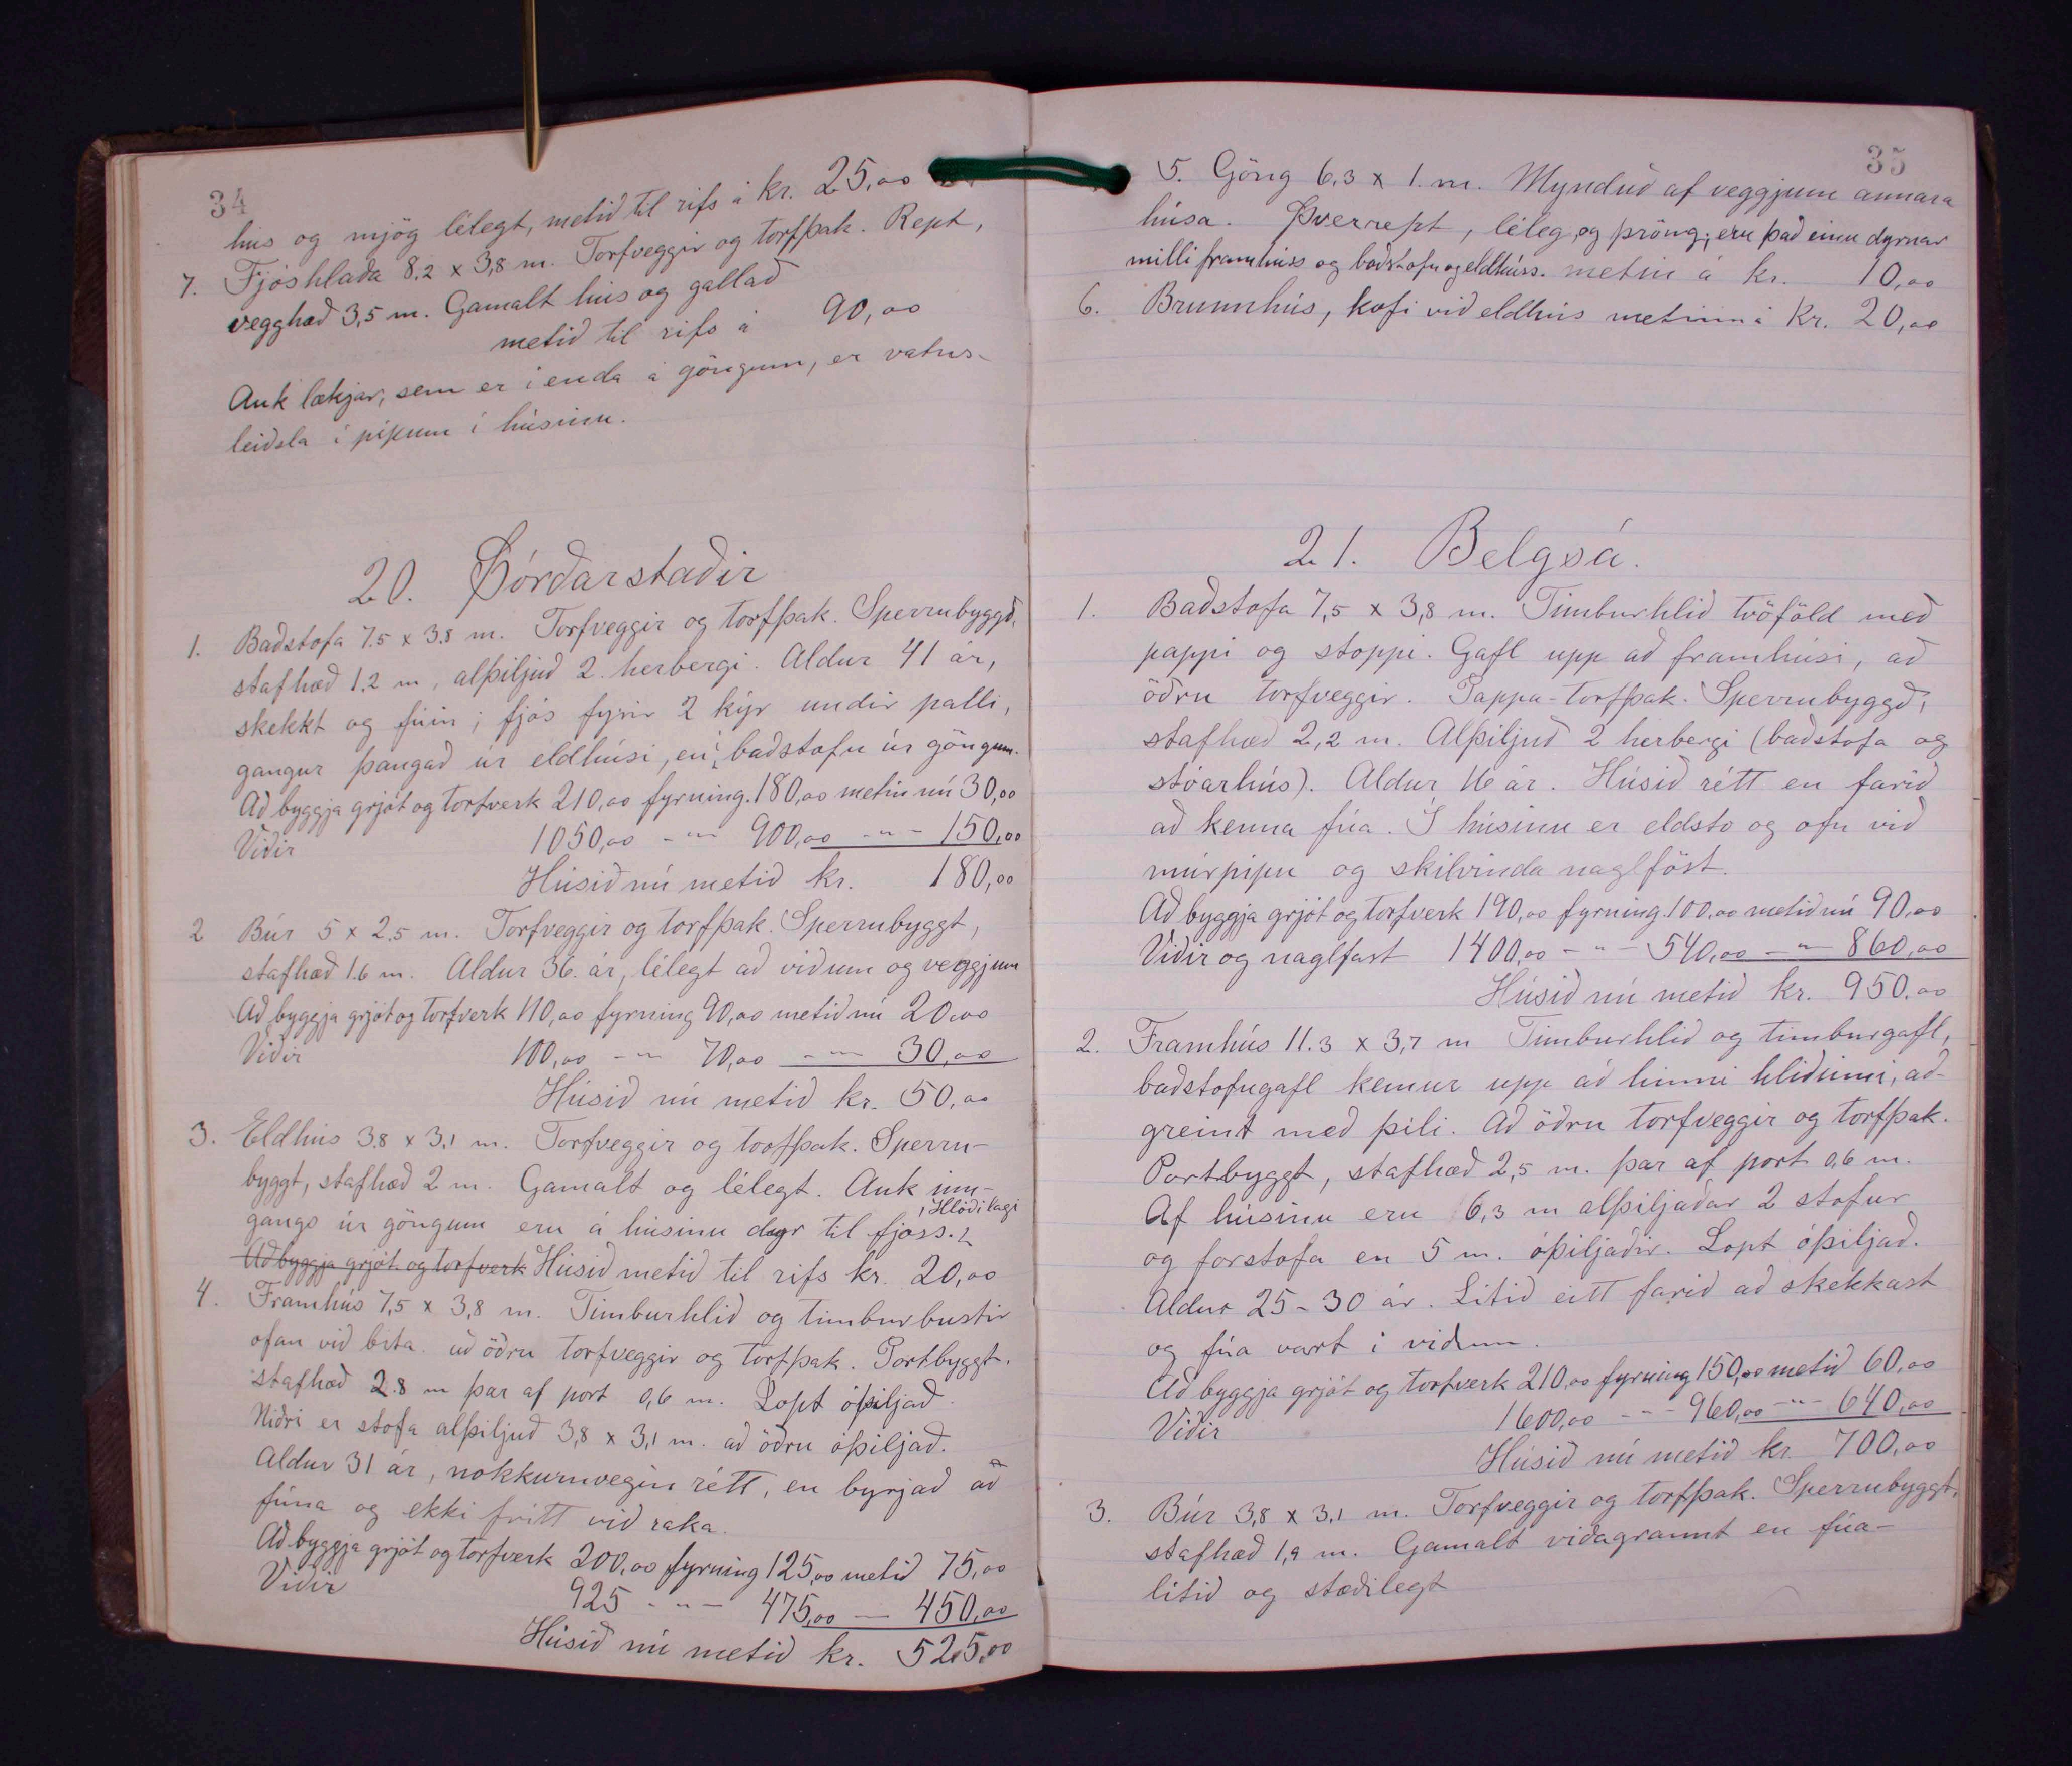 34
hús og mjög lélegt, metið til rifs á kr. 25,00
7. Fjóshlaða 8.2 x 3,8 m. Torfveggir og torfþak. Rept,
vegghæð 3,5 m. Gamalt hús og gallað
metið til rifs á 90,00
Auk lækjar, sem er í enda á göngum, er vatns-
leiðsla í pípum í húsinu.
20. Þórðarstaðir
1. Baðstofa 7.5 x 3.8 m. Torfveggir og torfþak. Sperrubyggð,
stafhæð 1.2 m, alþiljuð 2 herbergi. Aldur 41 ár,
skekkt og fúin; fjós fyrir 2 kýr undir palli,
gangur þangað úr eldhúsi, en í baðstofu úr göngum.
Að byggja grjót og torfverk 210,00 fyrning. 180,00 metin nú 30,00
Viðir 1050,00 - " - 900,00 - " - 150,00
Húsið nú metið kr. 180,00
2 Búr 5 x 2.5 m. Torfveggir og torfþak. Sperrubyggt,
stafhæð 1.6 m. Aldur 36. ár, lélegt að viðum og veggjum
Að byggja grjót og torfverk 110,00 fyrning 90,00 metið nú 20,00
Viðir 100,00 - " - 70,00 - " - 30,00
Húsið nú metið kr. 50,00
3. Eldhús 3.8 x 3,1 m. Torfveggir og torfþak. Sperru-
byggt, stafhæð 2 m. Gamalt og lélegt. Auk inn-
gangs úr göngum eru á húsinu dyr til fjóss. Hlóðir lagi
Að byggja grjót og torfverk Húsið metið til rifs kr. 20,00
4. Framhús 7,5 x 3,8 m. Timburhlið og timburbustir
ofan við bita. að öðru torfveggir og torfþak. Portbyggt.
stafhæð 2.8 m þar af port 0,6 m. Lopt óþiljað.
Niðri er stofa alþiljuð 3,8 x 3,1 m. að öðru óþiljað.
Aldur 31 ár, nokkurnvegin rétt, en byrjað að
fúna og ekki frítt við raka.
Að byggja grjót og torfverk 200,00 fyrning 125,00 metið 75,00
Viðir 925 - " - 475,00 — 450,00
Húsið nú metið kr. 525,00
35
5. Göng 6,3 x 1. m. Mynduð af veggjum annara
húsa. Þverrept, léleg, og þröng; eru það einu dyrnar
milli framhúss og baðstofu og eldhúss. metin á kr. 10,00
6. Brunnhús, kofi við eldhús metinn á Kr. 20,00
21. Belgsá.
1. Baðstofa 7,5 x 3,8 m. Timburhlið tvöföld með
pappi og stoppi. Gafl upp að framhúsi, að
öðru torfveggir. Pappa-torfþak. Sperrubyggð,
stafhæð 2,2 m. Alþiljuð 2 herbergi (baðstofa og
stóarhús). Aldur 16 ár. Húsið rétt en farið
að kenna fúa. Í húsinu er eldsto og ofn við
múrpípu og skilvinda naglföst.
Að byggja grjót og torfverk 190,00 fyrning. 100,00 metið nú 90,00
Viðir og naglfast 1400,00 - " - 540,00 - " - 860,00
Húsið nú metið kr. 950,00
2. Framhús 11.3 x 3,7 m Timburhlið og timburgafl,
baðstofugafl kemur upp að hinni hliðinni, að-
greint með þili. Að öðru torfveggir og torfþak.
Portbyggt, stafhæð 2,5 m. þar af port 0,6 m.
Af húsinu eru 6,3 m alþiljaðar 2 stofur
og forstofa en 5 m. óþiljaðir. Lopt óþiljað.
Aldur 25-30 ár. Lítið eitt farið að skekkast
og fúa vart í viðum.
Að byggja grjót og torfverk 210,00 fyrning 150,00 metið 60,00
Viðir 1600,00 - " - 960,00 - " - 640,00
Húsið nú metið kr. 700,00
3. Búr 3,8 x 3,1 m. Torfveggir og torfþak. Sperrubyggt,
stafhæð 1,9 m. Gamalt viðagrannt en fúa-
lítið og stæðilegt